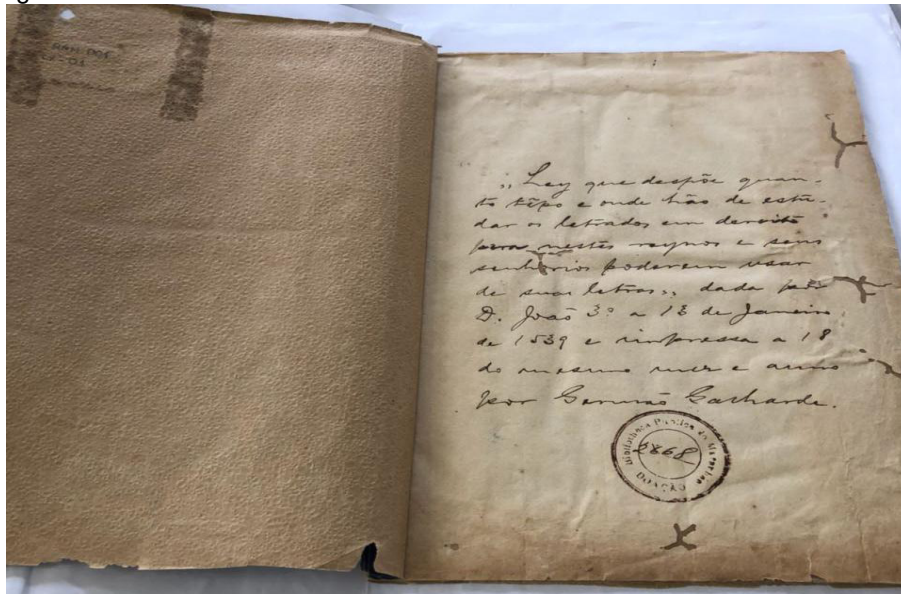 „Ley que despõe quan-
to tẽpo e onde hão de estu-
dar os letrados em dereito
pera nestes reynos e seus
senhorios poderem usar
de suas letras„ dada por
D. João 3º a 13 de Janeiro
de 1539 e impressa a 18
do mesmo mez e anno
por Germão Galharde.
Bibliotheca Publica do Maranhão
2868
DOAÇÃO